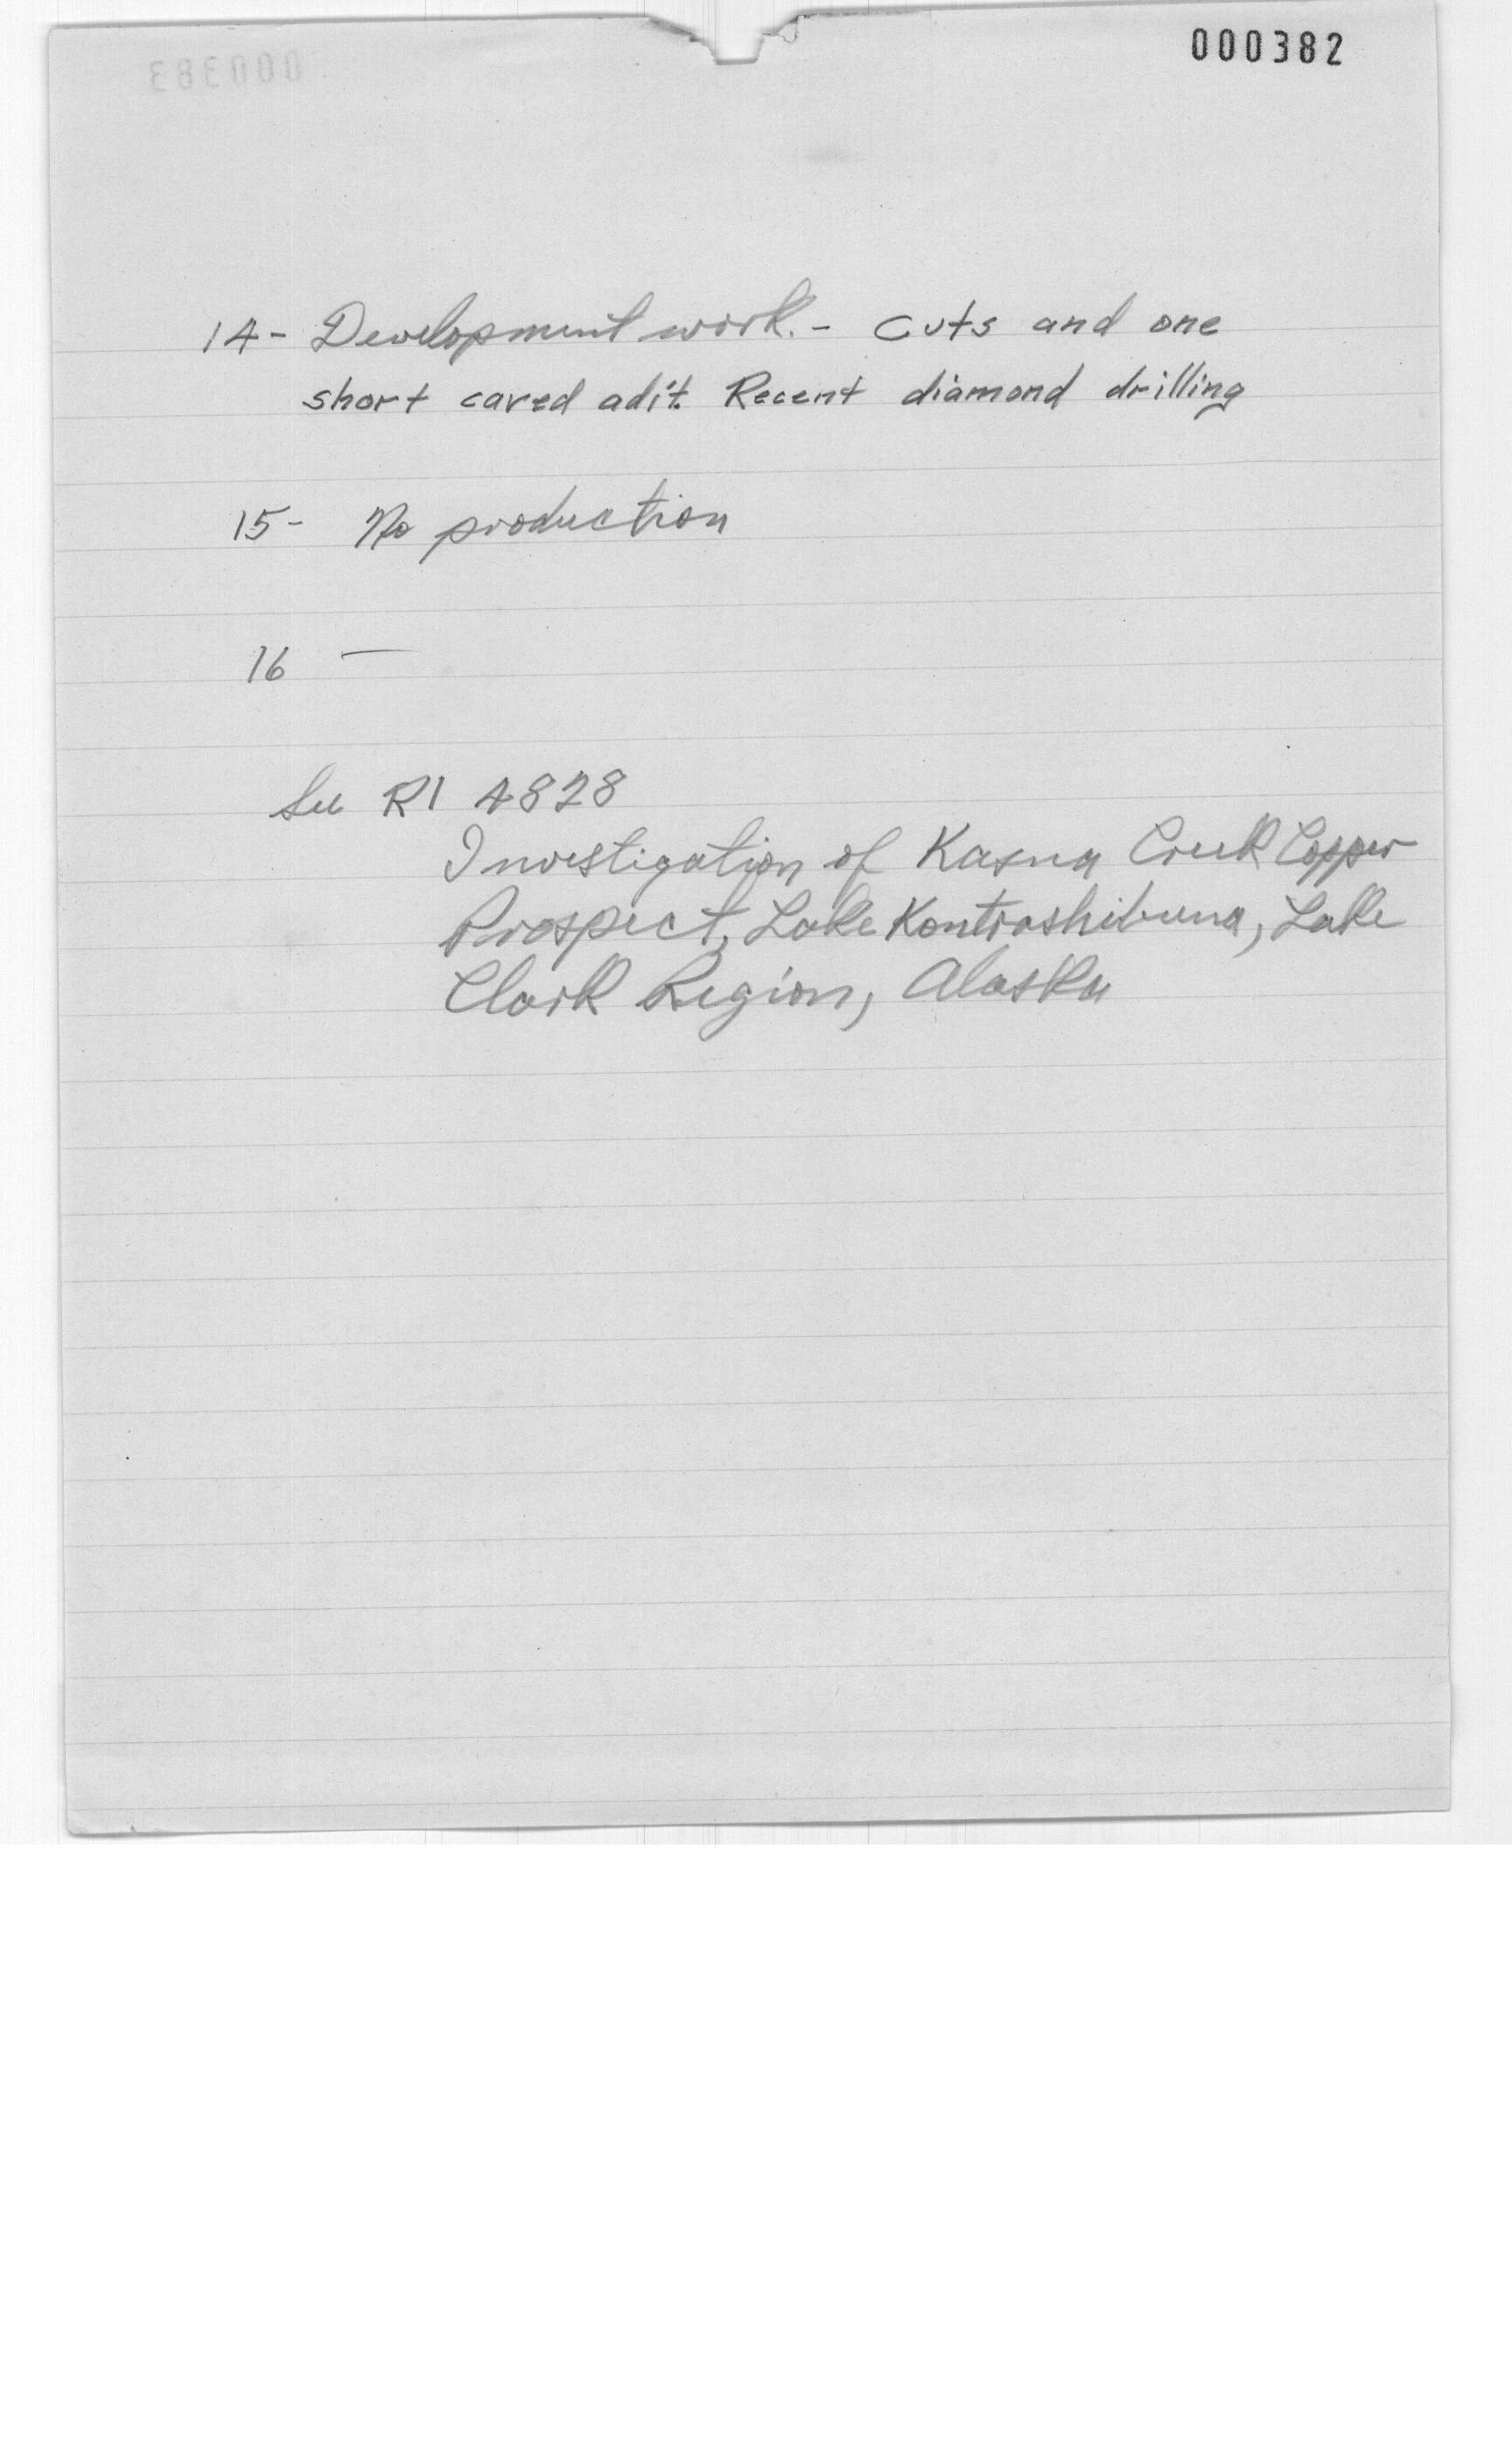 000382
14- Development work. - cuts and one
short caved adit. Recent diamond drilling
15- No production
16 —
See RI 4828
Investigation of Kasna Creek Copper
Prospect, Lake Kontrashibuna, Lake
Clark Region, Alaska